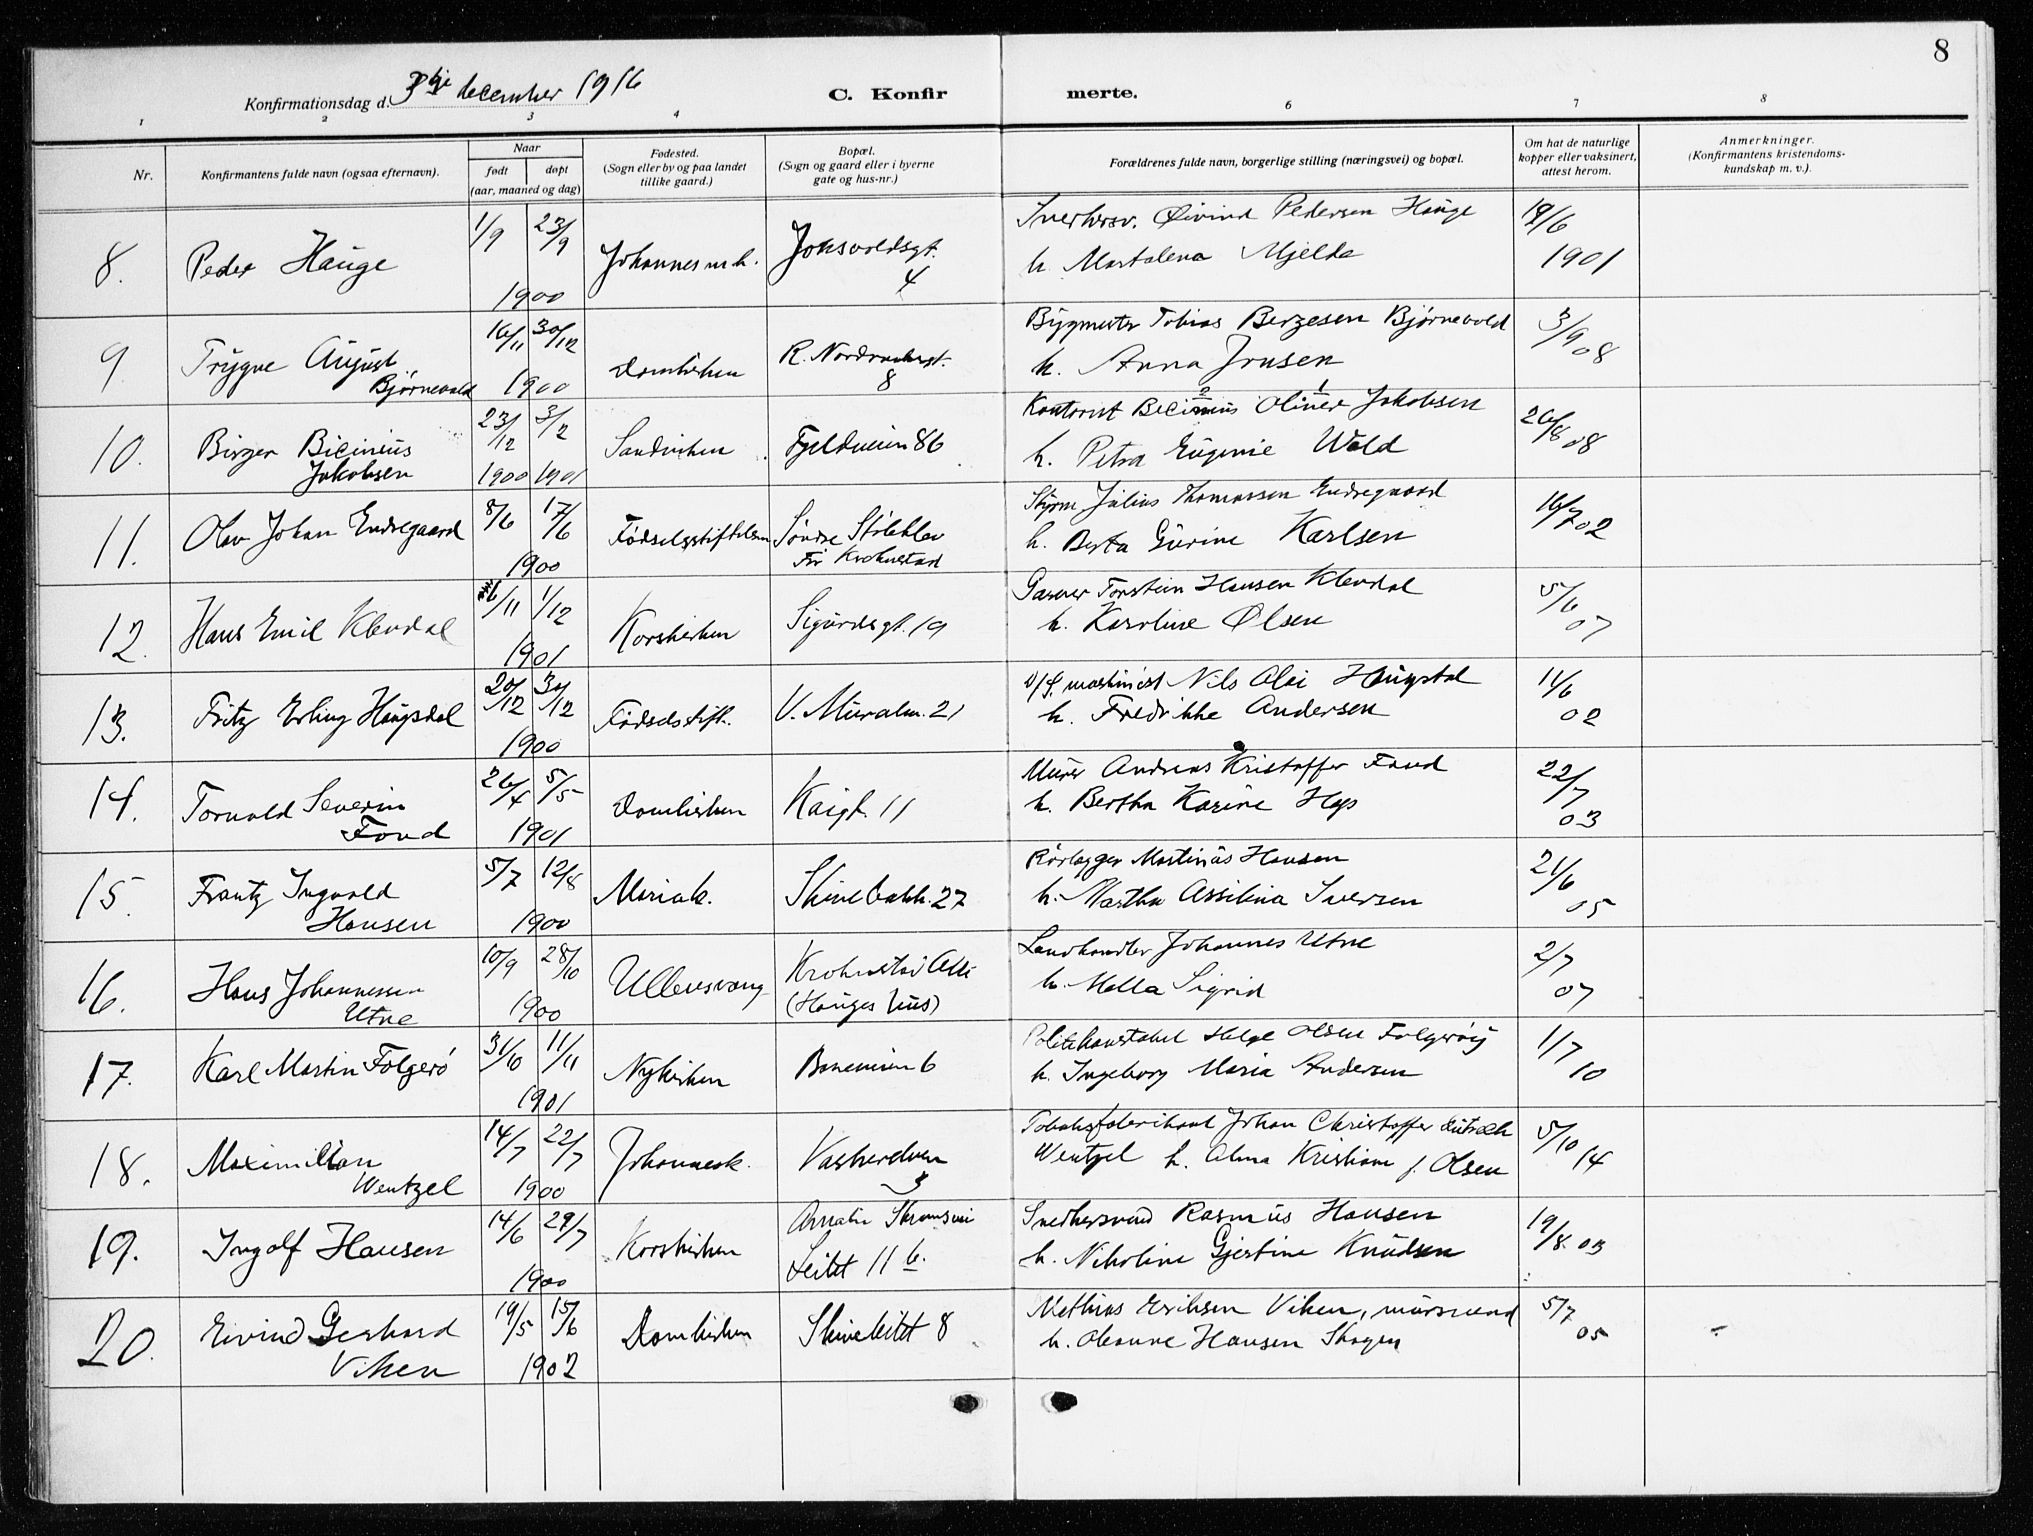 8
Konfirmationsdag d. 3dje december 1916
C. Konfir
merte.
1 2 3 4 6 7 8
Nr.
Konfirmantens fulde navn (ogsaa efternavn).
Naar
født døpt
(aar, maaned og dag)
Fødested.
(Sogn eller by og paa landet
tillike gaard.)
Bopæl.
(Sogn og gaard eller i byerne
gate og hus-nr.)
Forældrenes fulde navn, borgerlige stilling (næringsvei) og bopæl.
Om hat de naturlige
kopper eller vaksinert,
attest herom.
Anmerkninger.
(Konfirmantens kristendoms-
kundskap m. v.).
8. Peder Hauge
1/9 23/9
1900
Johannes
4
Øivind Pedersen Hauge
h. Martalena Mjelde
19/6
1901
9. Trygve August
Bjørnevold
16/11 30/12
1900
Domkirken
8
Bygmester Tobias Bergesen Bjørnevold
h. Anna Jensen
3/9 08
10. Birger Bicinius
Jakobsen
23/12 3/2
1900 1901
Sandviken
Fjeldveien 86
Kontorist Bicinius Oliver Jakobsen
h. Petra Eugenie Wold
26/8 08
11. Olav Johan Endregaard
8/6 17/6
1900
Fødselsstiftelsen
Søndre
Styrm Julius Thomassen Endregaard
h. Berta Gurine Karlsen
16/7 02
12. Hans Emil Klendal
6/11 1/12
1901
Korskirken
Sigurdsgt. 19
Garver Torstein Hansen Klendal
h. Karoline Olsen
5/6
07
13. Fritz Erling Haugsdal
20/12 30/12
1900
Fødselsstift.
V. Muralm. 21
maskinist Nils Olai Haugsdal
h. Fredrikke Andersen
11/6
02
14. Torvald Severin
Fond
26/4 5/5
1901
Domkirken
Kaigt. 11
Murer Andreas Kristoffer Fond
h. Bertha Karine
22/7
03
15. Frantz Ingvald
Hansen
5/7 12/8
1900
Mariak.
Skivebakk. 27
Rørlægger Martinus Hansen
h. Martha Assilina Iversen
21/6
05
16. Hans Johannessen
Utne
10/9 28/10
1900
Ullensvang
Krohnstad Alle
(Hauges hus)
Landhandler Johannes Utne
h. Malla Sigrid
2/7
07
17. Karl Martin Folgerø
31/10 11/11
1901
Nykirken
6
Politikonstabel Helge Olsen Folgerøy
h. Ingeborg Maria Andersen
1/7
10
18. Maximilian
Wentzel
14/7 22/7
1900
Johannesk.
Vaskerelven
3
Tobaksfabrikant Johan Christoffer
Wentzel h. Alma Kristiane f. Olsen
5/10
14
19. Ingolf Hansen
14/6 29/7
1900
Korskirken
11 b.
Snedkersvend Rasmus Hansen
h. Nikoline Gjertine Knudsen
19/8. 03
20. Eivind Gerhard
Viken
19/5 15/6
1902
Domkirken
8
Mathias Eriksen Viken, mursvend
h. Oleanne Hansen Skogen
5/7
05